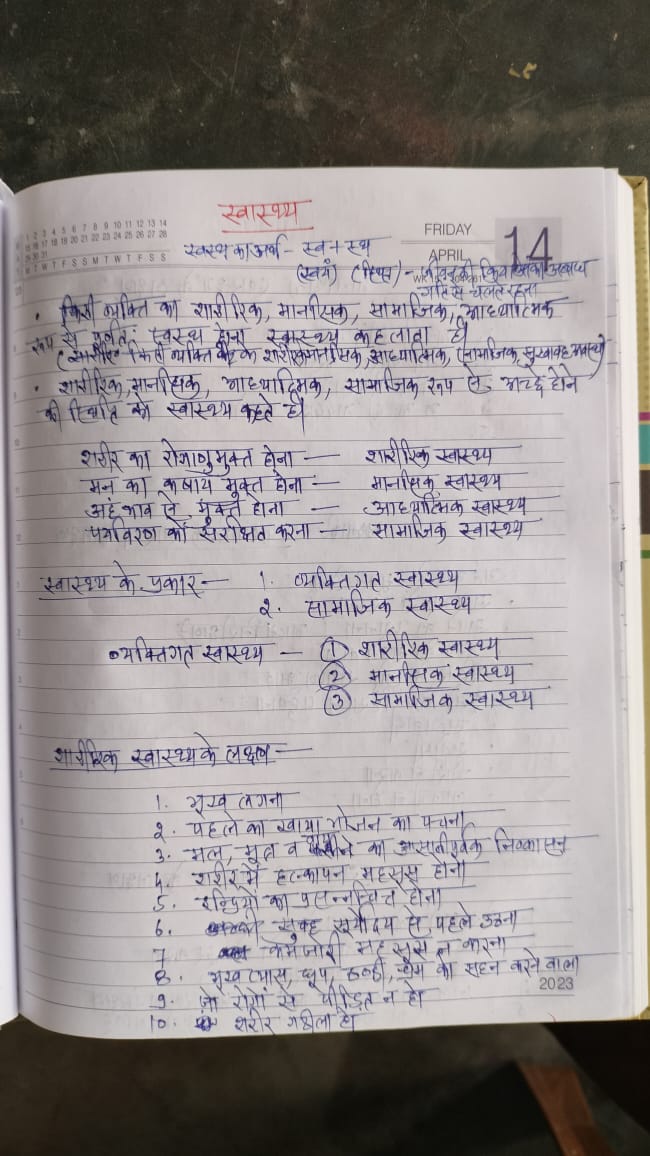 स्वास्थ्य
1 2 3 4 5 6 7 8 9 10 11 12 13 14
FRIDAY
APRIL
14
स्वस्थ का अर्थ - स्व + स्थ
(स्वयं) (स्थित) -
• किसी व्यक्ति का शारीरिक, मानसिक, सामाजिक, आध्यात्मिक
रूप से पूर्णतः स्वस्थ होना स्वास्थ्य कहलाता है।
किसी व्यक्ति का शारीरिक मानसिक, आध्यात्मिक, सामाजिक, सुखावह अवस्था
• शारीरिक, मानसिक, आध्यात्मिक, सामाजिक रूप से अच्छे होने
की स्थिति को स्वास्थ्य कहते है।
शरीर का रोगाणुमुक्त होना — शारीरिक स्वास्थ्य
मन का कषाय मुक्त होना — मानसिक स्वास्थ्य
अहंभाव से मुक्त होना — आध्यात्मिक स्वास्थ्य
पर्यावरण को सुरक्षित करना — सामाजिक स्वास्थ्य
स्वास्थ्य के प्रकार — 1. व्यक्तिगत स्वास्थ्य
२. सामाजिक स्वास्थ्य
• व्यक्तिगत स्वास्थ्य — ① शारीरिक स्वास्थ्य
② मानसिक स्वास्थ्य
③ सामाजिक स्वास्थ्य
शारीरिक स्वास्थ्य के लक्षण —
1. भूख लगना
२. पहले का खाया भोजन का पचना
3. मल, मूत्र व का आसानीपूर्वक निष्कासन
4. शरीर में हल्कापन महसूस होना
5. इन्द्रियों का प्रसन्नचित होना
6. सुबह सूर्योदय से पहले उठना
7 कमजोरी महसूस न करना
8. भूख प्यास, धूप, ठण्डी, को सहन करने वाला
9 जो रोगों से पीड़ित न हो
10. शरीर गठीला हो
2023